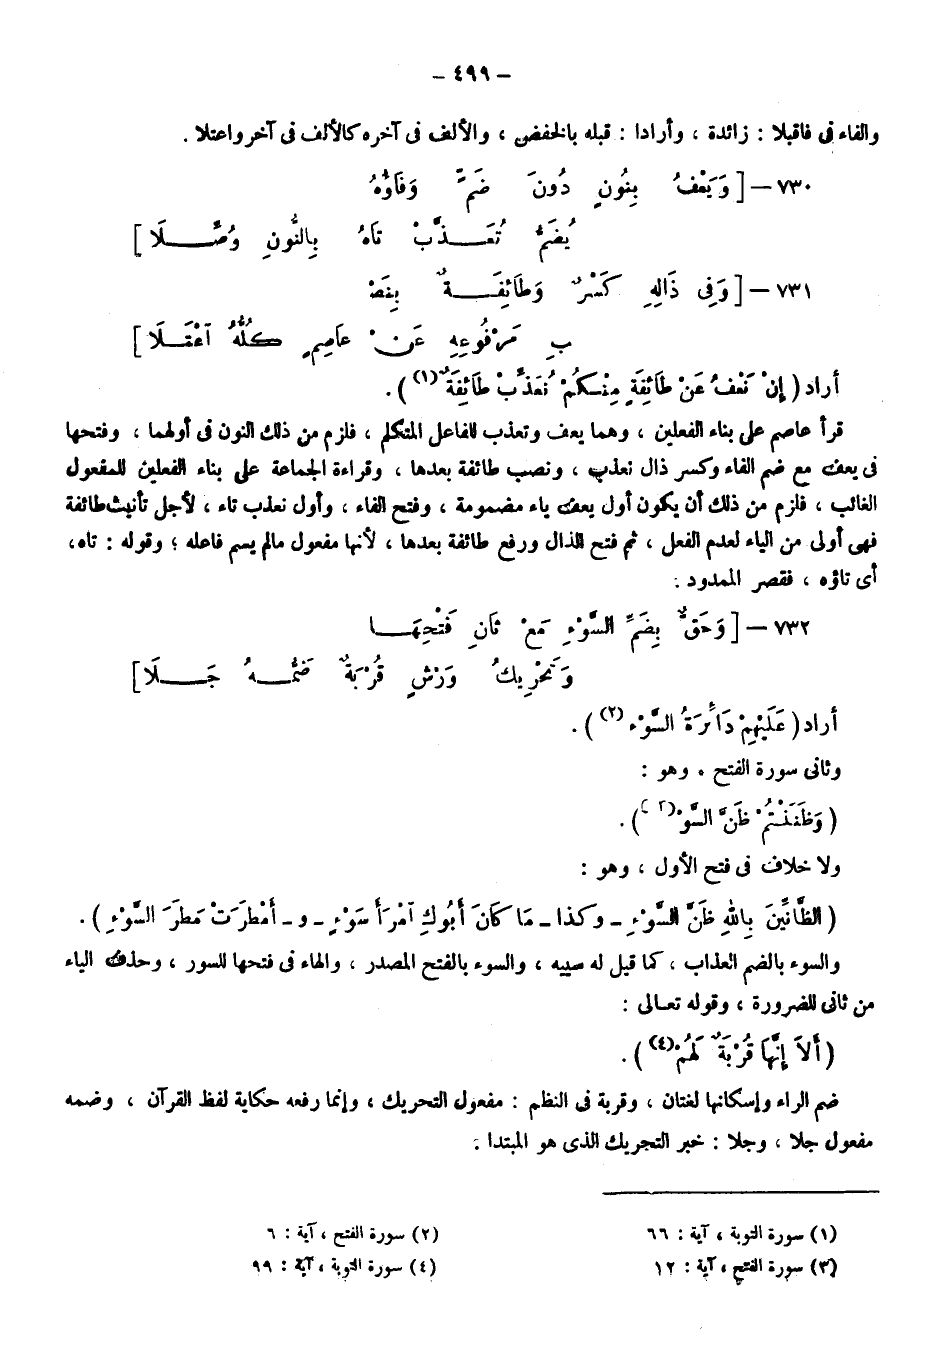 — ٤٩٩ —
والفاء فى فاقبلا : زائدة ، وأرادا : قبله بالخفض ، والألف فى آخره كالألف فى آخر واعتلا .
٧٣٠ — [ وَيَعْفُ بِنُونٍ دُونَ ضَمٍّ وَفَاؤُهُ
يُضَمُّ تُعَــذَّبْ تَاهُ بِالنُّونِ وُصِّــلَا ]
٧٣١ — [ وَفِى ذَالِهِ كَسْرٌ وَطَائِفَــةٌ بِنَصْـ
ـبِ مَرْفُوعِهِ عَنْ عَاصِمٍ كُلُّهُ اعْتَــلَا ]
أراد ( إِنْ نَعْفُ عَنْ طَائِفَةٍ مِنْكُمْ نُعَذِّبْ طَائِفَةً (١) ) .
قرأ عاصم على بناء الفعلين ، وهما يعف وتعذب للفاعل المتكلم ، فلزم من ذلك النون فى أولهما ، وفتحها
فى يعف مع ضم الفاء وكسر ذال نعذب ، ونصب طائفة بعدها ، وقراءة الجماعة على بناء الفعلين للمفعول
الغائب ، فلزم من ذلك أن يكون أول يعف ياء مضمومة ، وفتح الفاء ، وأول نعذب تاء ، لأجل تأنيث طائفة
فهى أولى من الياء لعدم الفعل ، ثم فتح الذال ورفع طائفة بعدها ، لأنها مفعول مالم يسم فاعله ؛ وقوله : تاه،
أى تاؤه ، فقصر الممدود .
٧٣٢ — [ وَحَقٌّ بِضَمِّ السَّوْءِ مَعْ ثَانِ فَتْحِهَــا
وَتَحْرِيكُ وَرْشٍ قُرْبَةٌ ضَمُّــهُ جَــلَا ]
أراد ( عَلَيْهِمْ دَائِرَةُ السَّوْءِ (٢) ) .
وثانى سورة الفتح . وهو :
( وَظَنَنْتُمْ ظَنَّ السَّوْءِ (٣) ) .
ولا خلاف فى فتح الأول ، وهو :
( الظَّانِّينَ بِاللهِ ظَنَّ السَّوْءِ ـ وكذا ـ مَا كَانَ أَبُوكِ امْرَأَ سَوْءٍ ـ و ـ أُمْطِرَتْ مَطَرَ السَّوْءِ ) .
والسوء بالضم العذاب ، كما قيل له سيبه ، والسوء بالفتح المصدر ، والهاء فى فتحها للسور ، وحذف الياء
من ثانى للضرورة ، وقوله تعالى :
( أَلَا إِنَّهَا قُرْبَةٌ لَهُمْ (٤) ) .
ضم الراء وإسكانها لغتان ، وقربة فى النظم : مفعول التحريك ، وإنما رفعه حكاية لفظ القرآن ، وضمه
مفعول جلا ، وجلا : خبر التحريك الذى هو المبتدا .
(١) سورة التوبة ، آية : ٦٦
(٢) سورة الفتح ، آية : ٦
(٣) سورة الفتح ، آية : ١٢
(٤) سورة التوبة ، آية : ٩٩